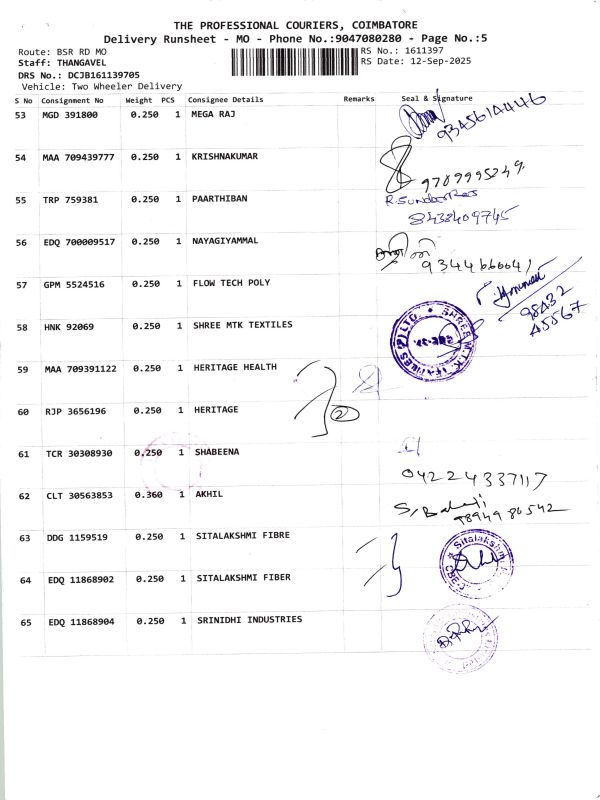 THE PROFESSIONAL COURIERS, COIMBATORE
Delivery Runsheet - MO - Phone No.:9047080280 - Page No.:5
Route: BSR RD MO
RS No.: 1611397
Staff: THANGAVEL
RS Date: 12-Sep-2025
DRS No.: DCJB161139705
Vehicle: Two Wheeler Delivery
S No Consignment No Weight PCS Consignee Details Remarks Seal & Signature
53 MGD 391800 0.250 1 MEGA RAJ
54 MAA 709439777 0.250 1 KRISHNAKUMAR
55 TRP 759381 0.250 1 PAARTHIBAN R.Sundar
8438409745
56 EDQ 700009517 0.250 1 NAYAGIYAMMAL
57 GPM 5524516 0.250 1 FLOW TECH POLY
98432
45567
58 HNK 92069 0.250 1 SHREE MTK TEXTILES SHREE M.T.K.
59 MAA 709391122 0.250 1 HERITAGE HEALTH
60 RJP 3656196 0.250 1 HERITAGE 2
61 TCR 30308930 0.250 1 SHABEENA
04224337117
62 CLT 30563853 0.360 1 AKHIL S. Balaji
63 DDG 1159519 0.250 1 SITALAKSHMI FIBRE Sitalakshmi
64 EDQ 11868902 0.250 1 SITALAKSHMI FIBER
65 EDQ 11868904 0.250 1 SRINIDHI INDUSTRIES